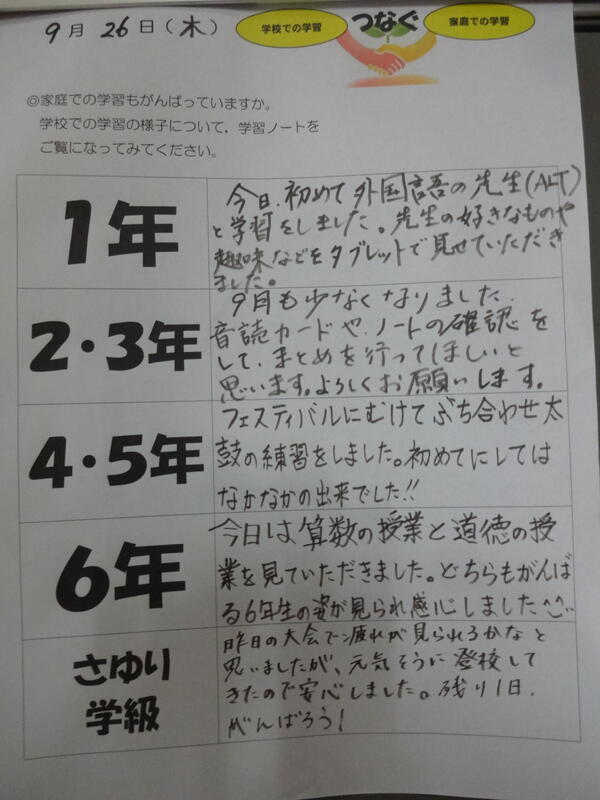 9月 26日(木)
学校での学習 つなぐ 家庭での学習
◎家庭での学習もがんばっていますか。
学校での学習の様子について，学習ノートを
ご覧になってみてください。
1年
今日、初めて外国言吾の先生(ALT)
と学習をしました。先生の好きなものや
趣味などをタブレットで見せていただき
ました。
2・3年
9月も少なくなりました。
音読カードや、ノートの確認を
して、まとめを行ってほしいと
思います。よろしくお願いします。
4・5年
フェスティバルにむけてぶち合わせ太
鼓の練習をしました。初めてにしては
なかなかの出来でした!!
6年
今日は算数の授業と道徳の授
業を見ていただきました。どちらもがんば
る6年生の姿が見られ感心しました^^
さゆり
学級
昨日の大会で疲れが見られるかなと
思いましたが、元気そうに登校して
きたので安心しました。残り1日、
がんばろう!